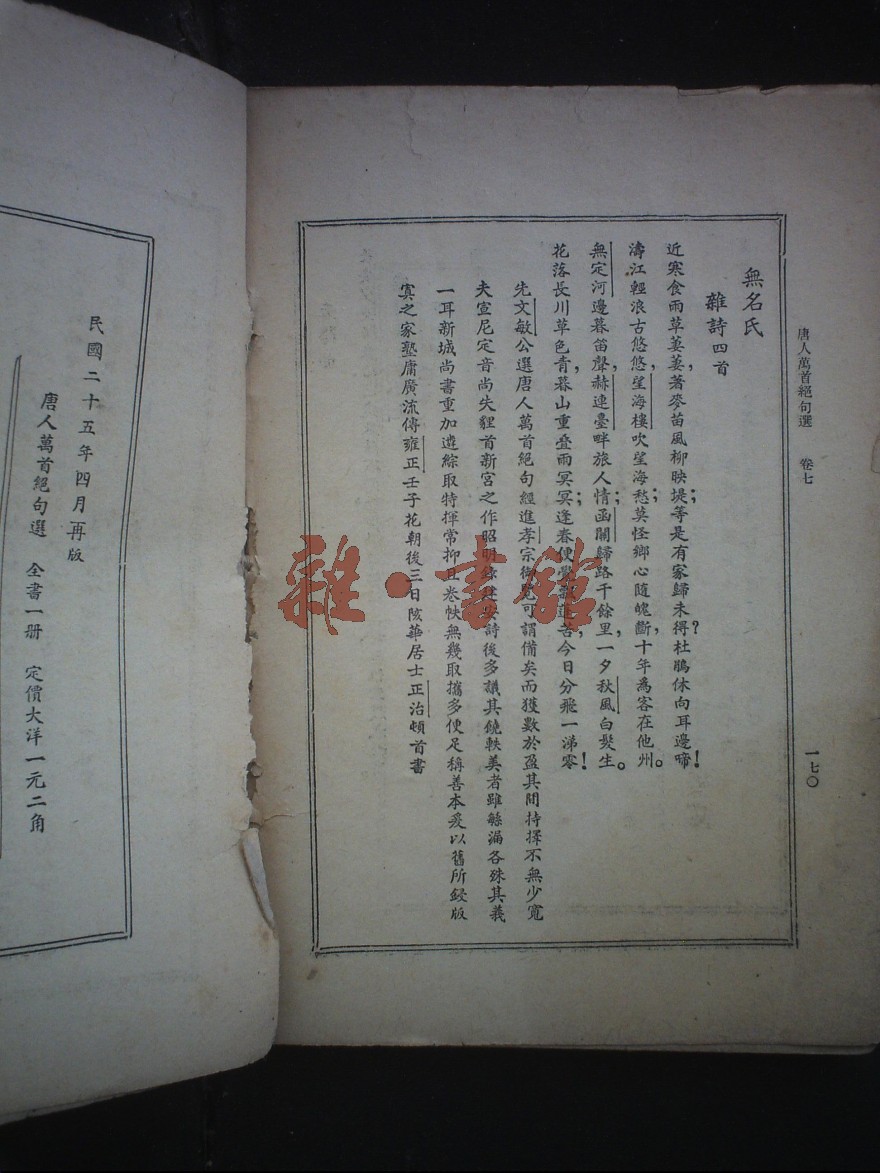 唐人萬首絕句選　卷七
一七〇
無名氏
雜詩四首
近寒食雨草萋萋，著麥苗風柳映堤；等是有家歸未得？杜鵑休向耳邊啼！
濤江輕浪古悠悠，望海樓吹望海愁；莫怪鄉心隨魄斷，十年為客在他州。
無定河邊暮笛聲，赫連臺畔旅人情；函關歸路千餘里，一夕秋風白髮生。
花落長川草色青，暮山重叠雨冥冥；逢春便覺飄蓬苦，今日分飛一涕零！
先文敏公選唐人萬首絕句經進孝宗御覽可謂備矣而獲數於盈其間持擇不無少寬
夫宣尼定音尚失貍首新宮之作昭明錄建安詩後多議其饒軼美者雖觴漏各殊其義
一耳新城尚書重加遴綜取特揮常抑且卷帙無幾取攜多便足稱善本爰以舊所鋟版
寘之家塾庸廣流傳雍正壬子花朝後三日陔華居士正治頓首書
民國二十五年四月再版
唐人萬首絕句選　全書一册　定價大洋一元二角
雜·書館